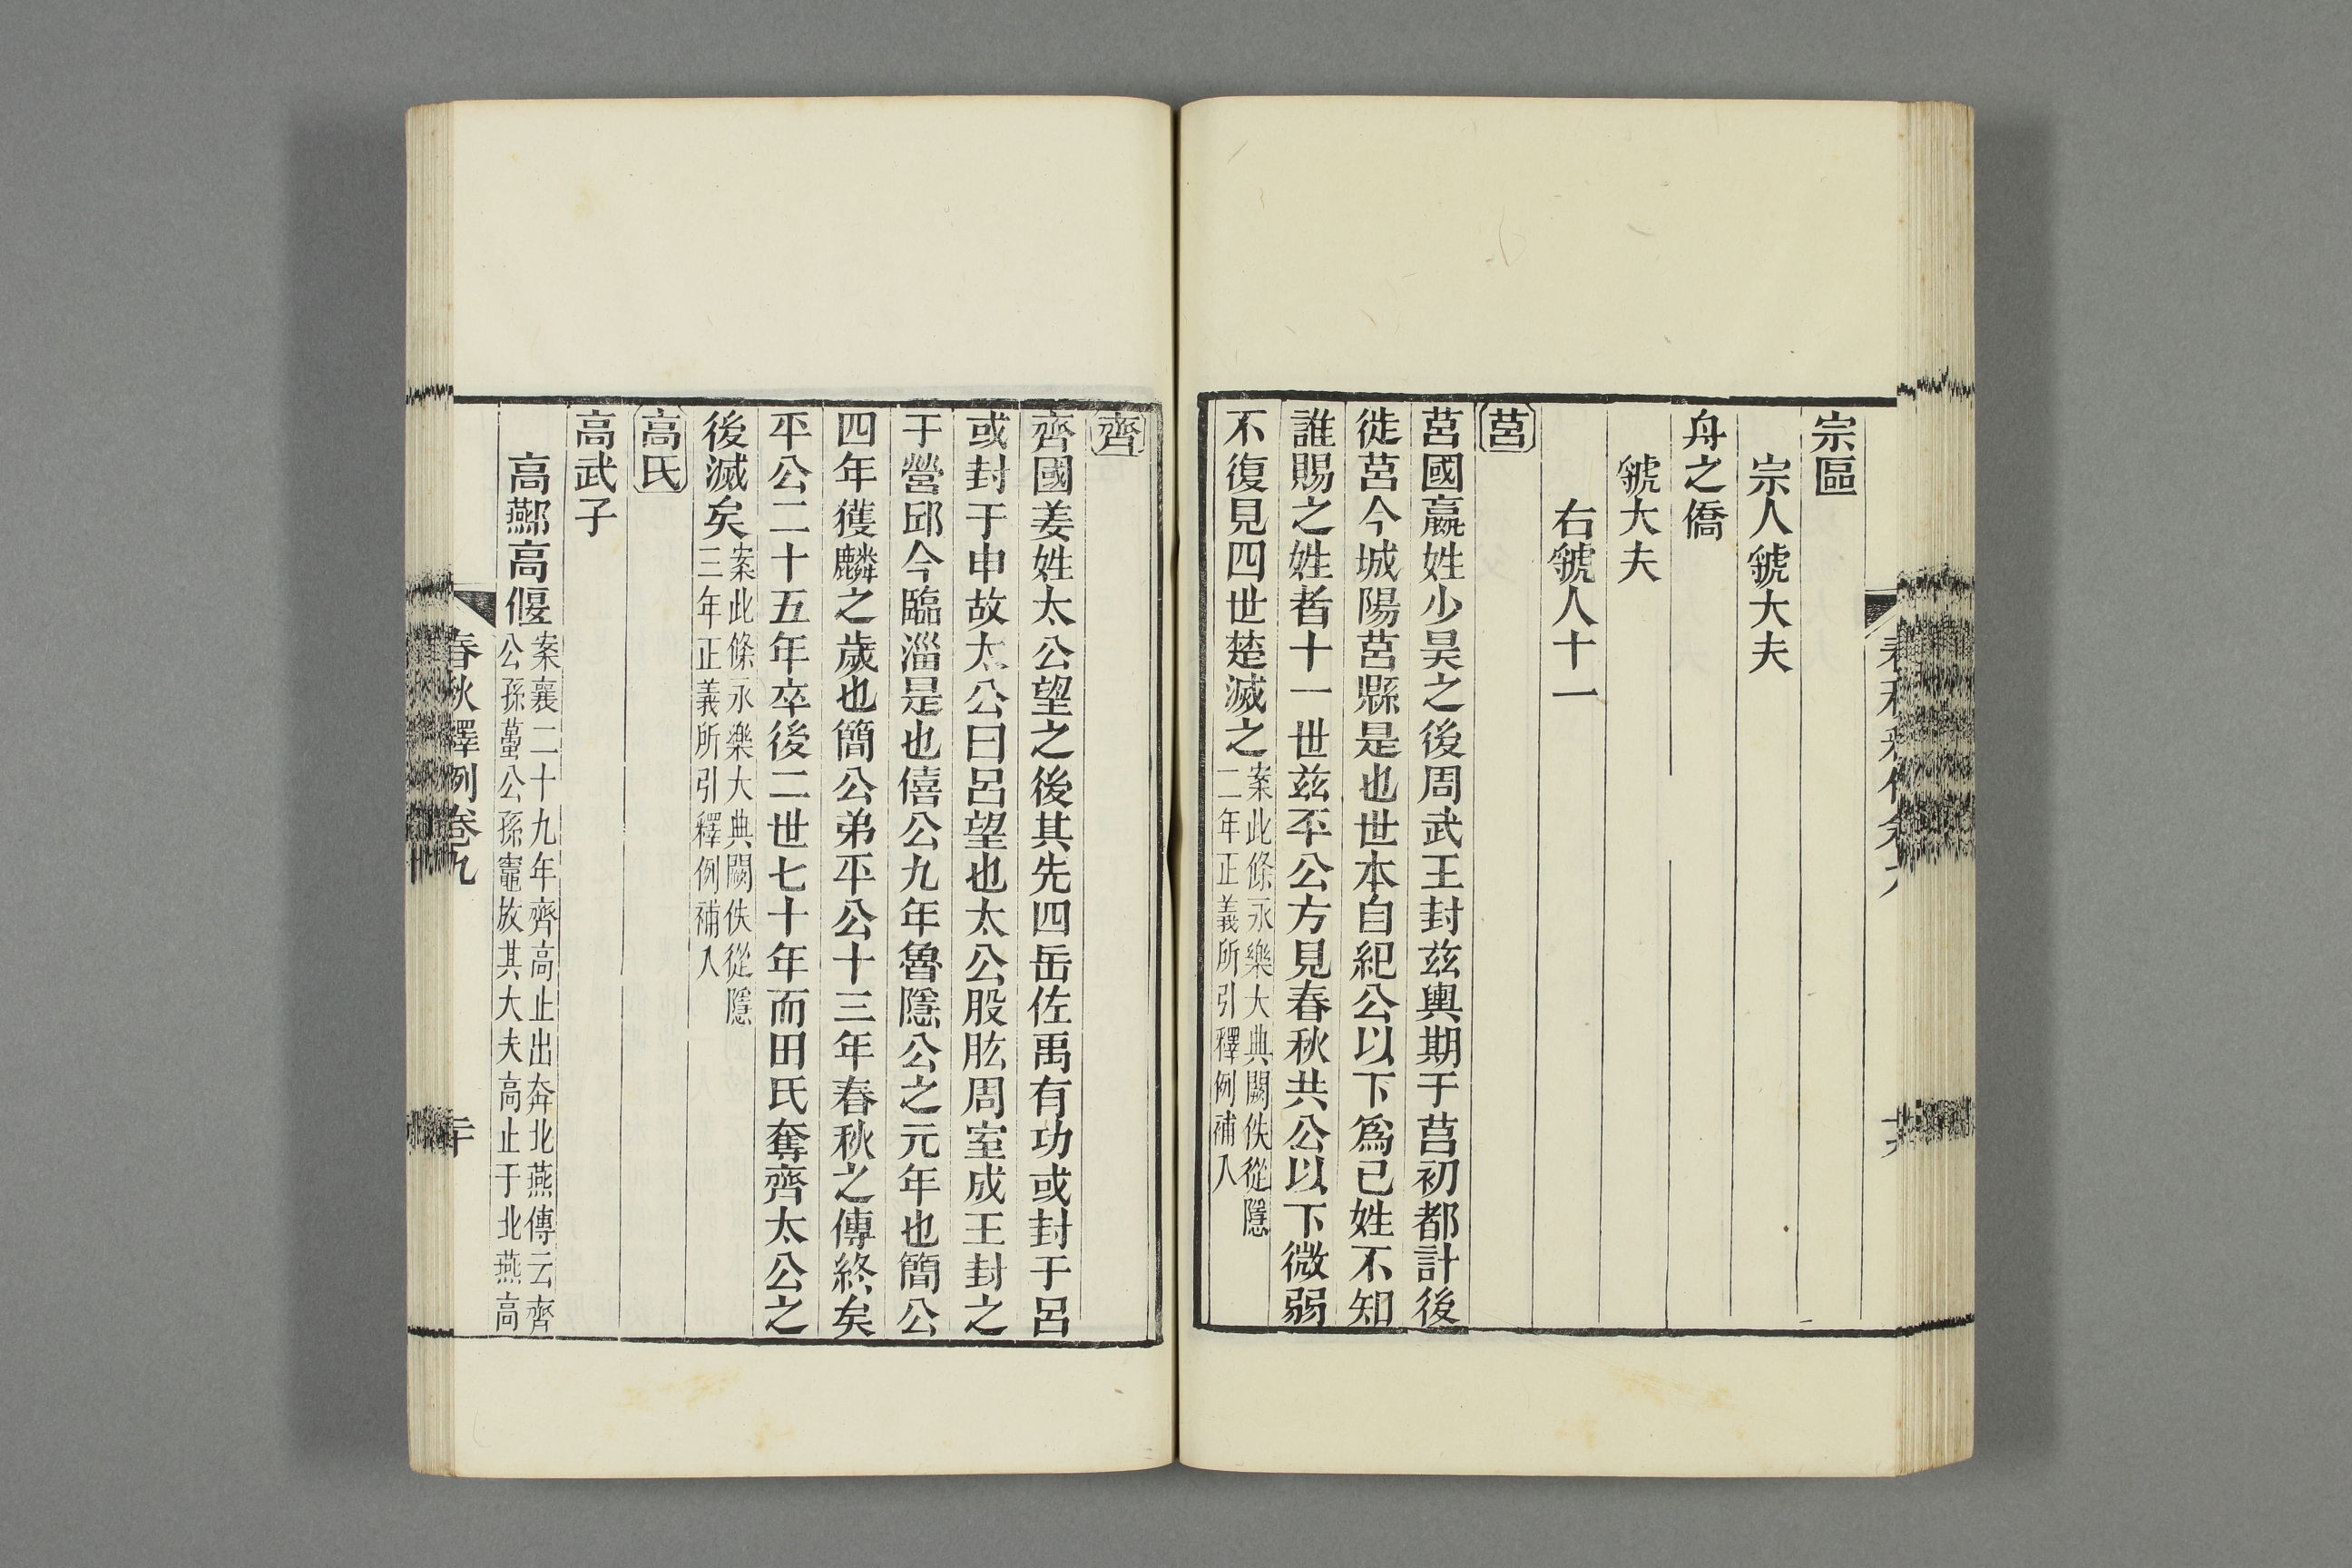 宗區
宗人虢大夫
舟之僑
虢大夫
右虢人十一
莒
莒國嬴姓少昊之後周武王封兹輿期于莒初都計後
徙莒今城陽莒縣是也世本自紀公以下爲已姓不知
誰賜之姓者十一世兹平公方見春秋共公以下微弱
不復見四世楚滅之
案此條永樂大典闕佚從隱
二年正義所引釋例補入
齊
齊國姜姓太公望之後其先四岳佐禹有功或封于呂
或封于申故太公曰呂望也太公股肱周室成王封之
于營邱今臨淄是也僖公九年魯隱公之元年也簡公
四年獲麟之歲也簡公弟平公十三年春秋之傳終矣
平公二十五年卒後二世七十年而田氏奪齊太公之
後滅矣
案此條永樂大典闕佚從隱
三年正義所引釋例補入
高氏
高武子
高酀高偃
案襄二十九年齊高止出奔北燕傳云齊
公孫蠆公孫竈放其大夫高止于北燕高
春秋釋例卷九